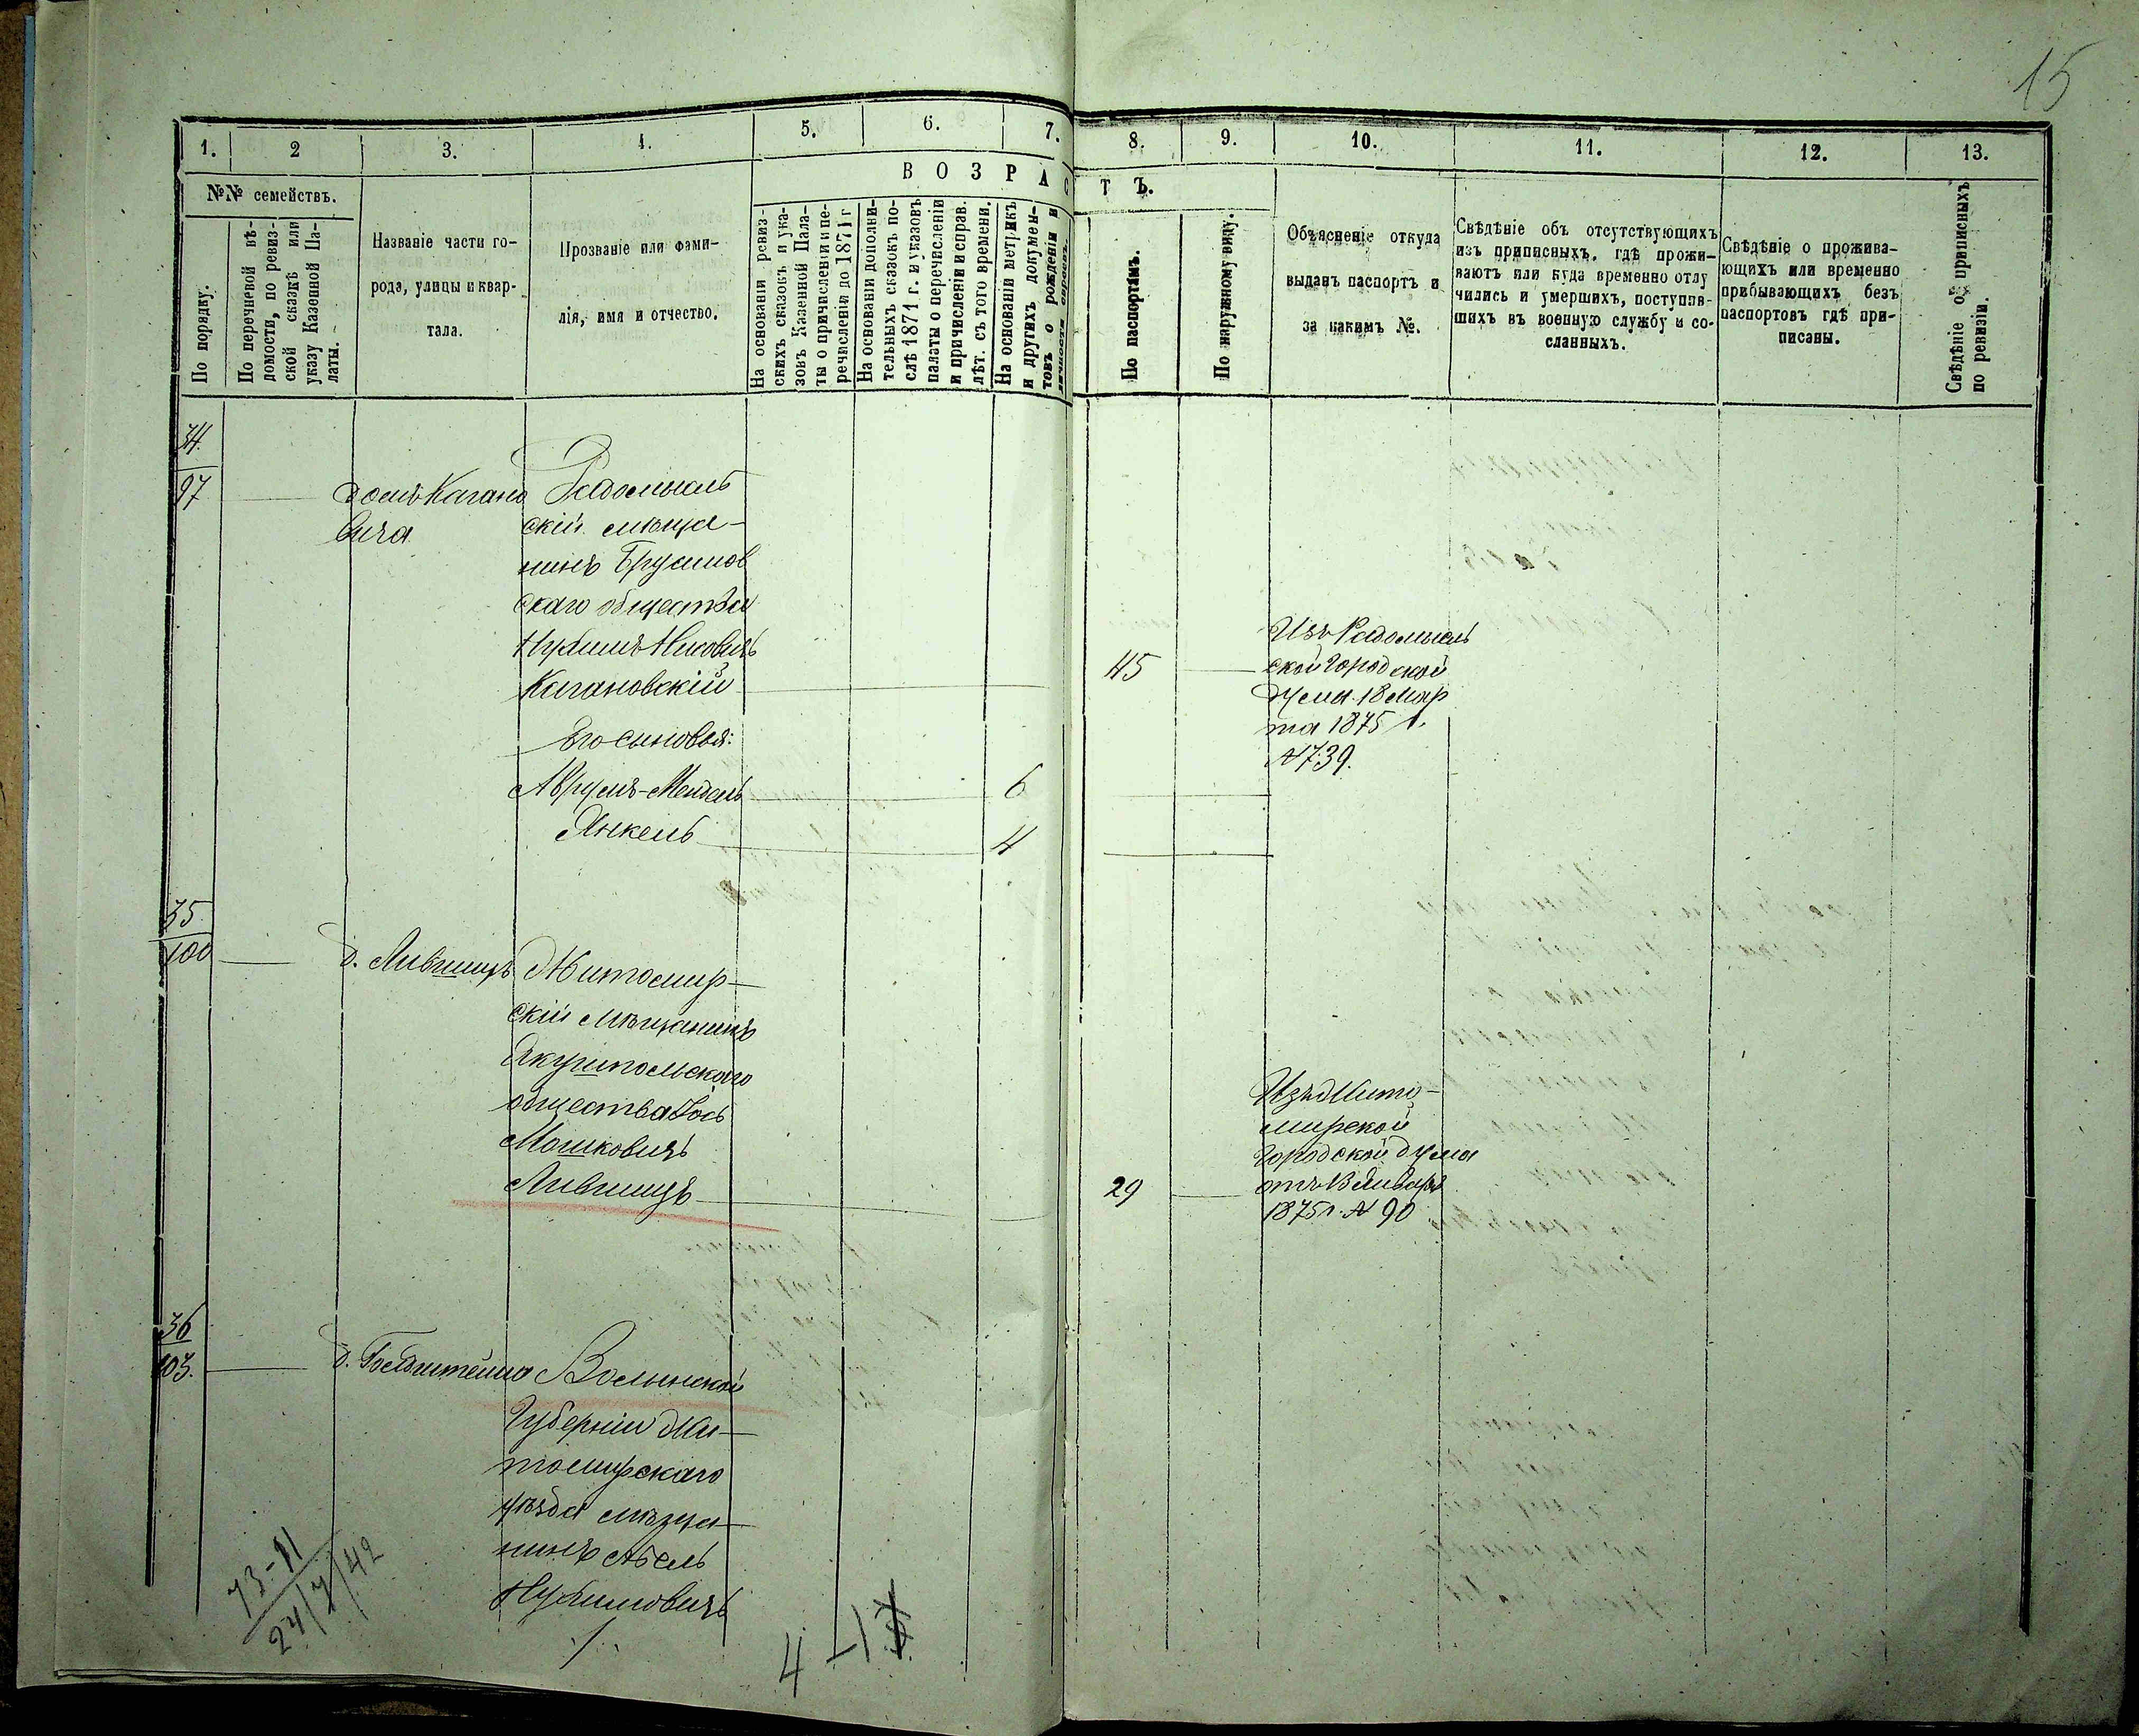 15
1.
2
3.
4.
5.
6.
7.
8.
9.
10.
11.
12.
13.
№№ семействъ.
ВОЗРАС
ТЪ.
По порядку.
По перечневой вѣ-
домости, по ревиз-
ской сказкѣ или
указу Казенной Па-
латы.
Названіе части го-
рода, улицы и квар-
тала.
Прозваніе или фами-
лія, имя и отчество.
На основаніи ревиз-
скихъ сказокъ и ука-
зовъ Казенной Пала-
ты о причисленіи и пе-
речисленіи до 1871 г
На основаніи дополни-
тельныхъ сказокъ по-
слѣ 1871 г. и указовъ
палаты о перечисленіи
и причисленіи и справ.
лѣт. съ того времени.
На основаніи метрикъ
и другихъ докумен-
товъ о рожденіи и
По паспортамъ.
По наружному виду.
Объясненіе откуда
выданъ паспортъ и
за какимъ №.
Свѣдѣніе объ отсутствующихъ
изъ приписныхъ, гдѣ прожи-
ваютъ или куда временно отлу
чились и умершихъ, поступив-
шихъ въ военную службу и со-
сланныхъ.
Свѣдѣніе о прожива-
ющихъ или временно
прибывающихъ безъ
паспортовъ гдѣ при-
писаны.
Свѣдѣніе о приписныхъ
по ревизіи.
34.
97
домъ Кагано
вича
Радомысль
скій мѣща-
нинъ Брусилов
скаго общества
Нухимъ
Кагановскій
45
Изъ Радомысль
ской Городской
Думы 18 Мар
та 1875 г.
№ 739.
Его сыновья:
Аврумъ-Мендель
6
Янкель
4
35.
100
д. Лившицъ
Житомир-
скій мѣщанинъ
Якушпольскаго
общества Іось
Мошковичъ
Лившицъ
29
Изъ Жито-
мирской
Городской Думы
отъ 13 Января
1875 г. № 90
36
103.
д. Гольдштейна
Волынской
Губерніи Жи-
томирскаго
уѣзда мѣща-
нинъ Абель
Нухимовичъ
24/7/42
4